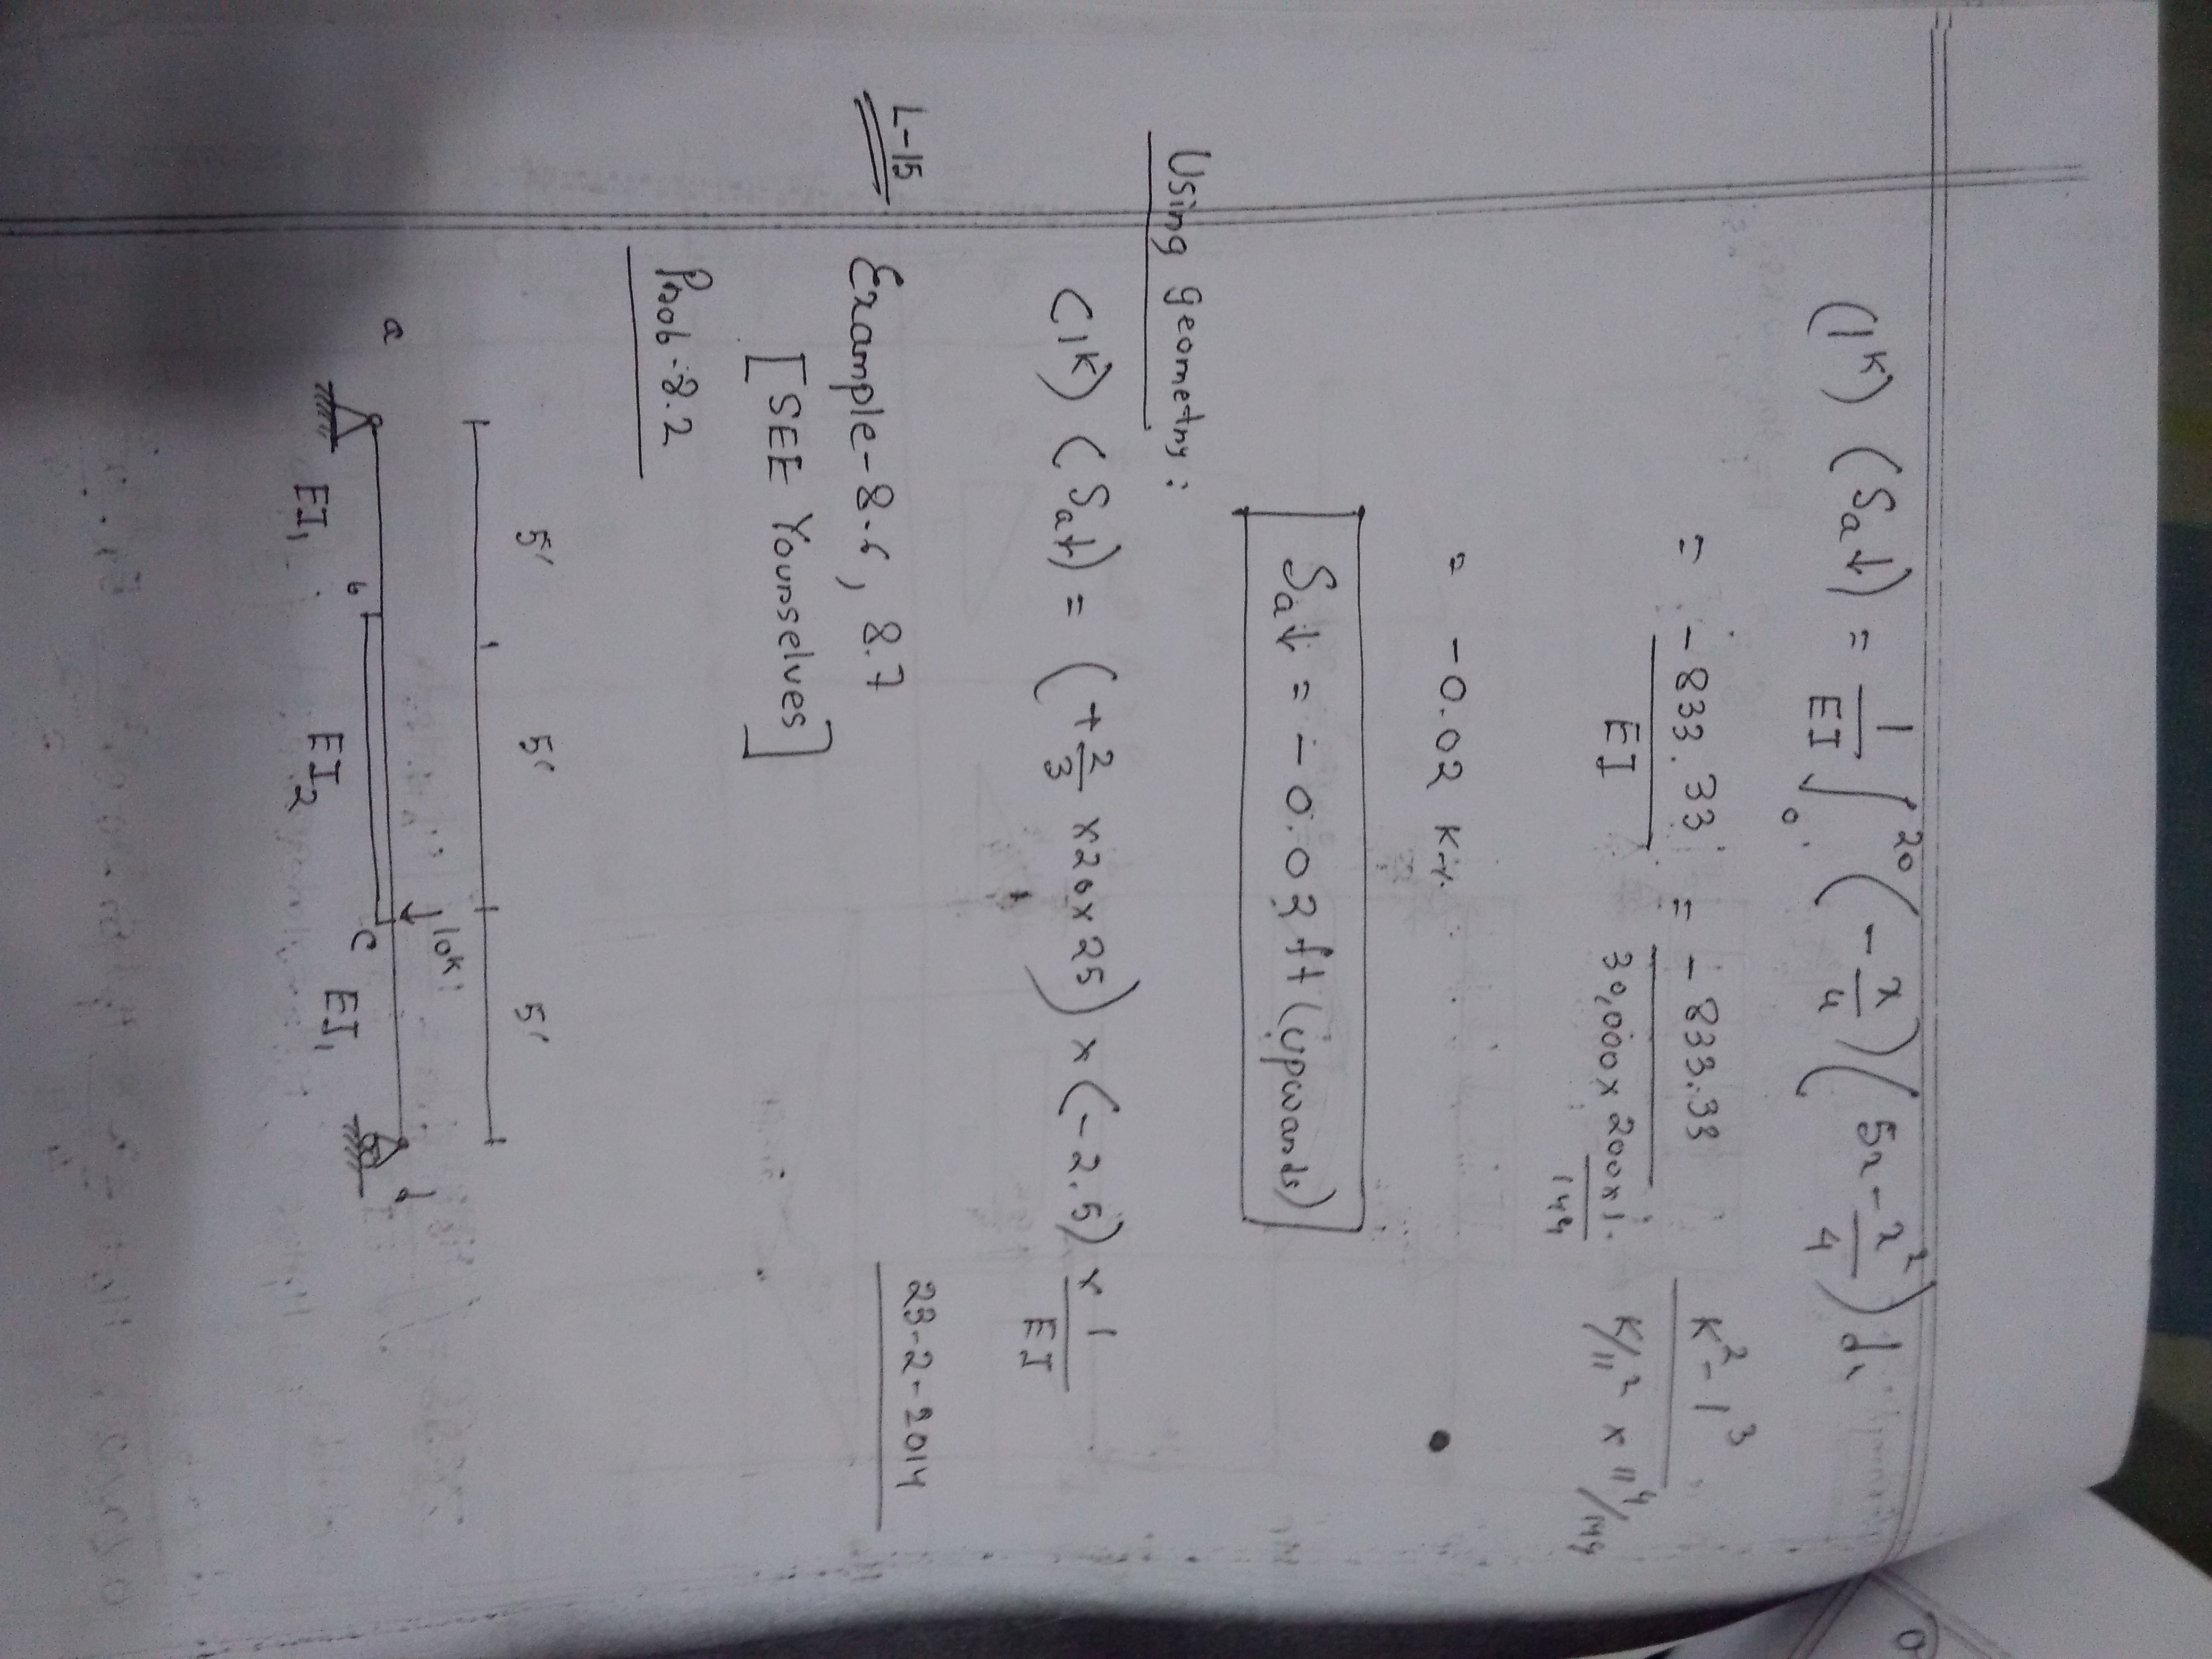 (1ᵏ) (δₐ↓) = 1/EI ∫₀²⁰ (-x/4) (5x - x²/4) dx
= -833.33/EI = -833.33/(30,000 x 200 x 1/144) K² - 1³/(K/11² x 11⁴/144)
= -0.02 K-1.
δₐ↓ = -0.02 ft (upwards)
Using geometry:
(1ᵏ) (δₐ↓) = (+2/3 x 20 x 25) x (-2.5) x 1/EI
23-2-2014
L-15 Example-8.6, 8.7
[SEE Yourselves]
Prob-8.2
5' 5' 5'
10ᵏ
a b c d
EI₁ EI₂ EI₁